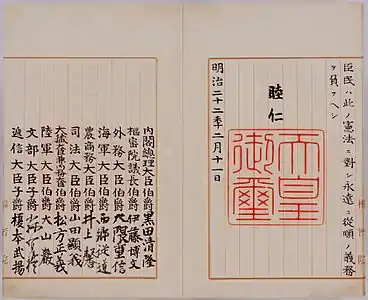 臣民ハ此ノ憲法ニ對シ永遠ニ從順ノ義務
ヲ負フヘシ
睦仁
天皇
御璽
明治二十二秊二月十一日
内閣總理大臣伯爵黒田清隆
樞密院議長伯爵伊藤博文
外務大臣伯爵大隈重信
海軍大臣伯爵西郷從道
農商務大臣伯爵井上馨
司法大臣伯爵山田顯義
大藏大臣兼内務大臣伯爵松方正義
陸軍大臣伯爵大山巖
文部大臣子爵森有禮
遞信大臣子爵榎本武揚